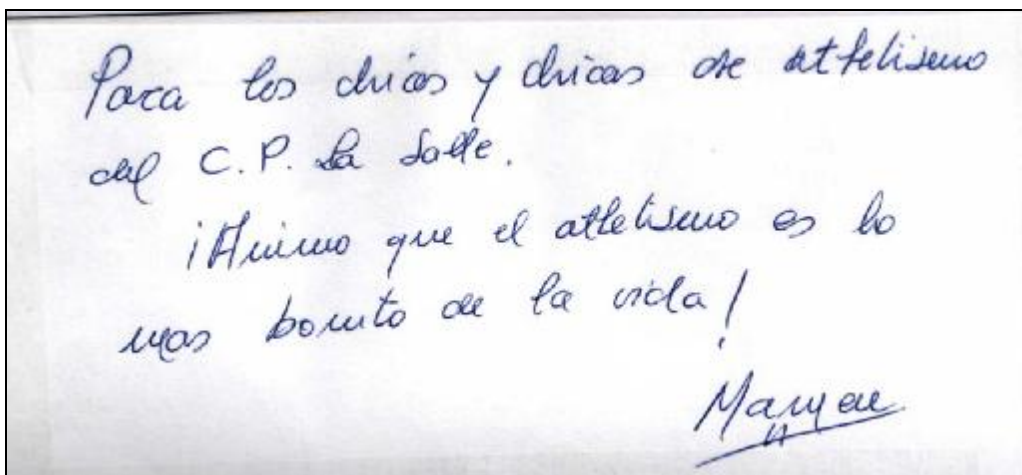 Para los chicos y chicas de atletismo
del C.P. La Salle.
¡Animo que el atletismo es lo
mas bonito de la vida!